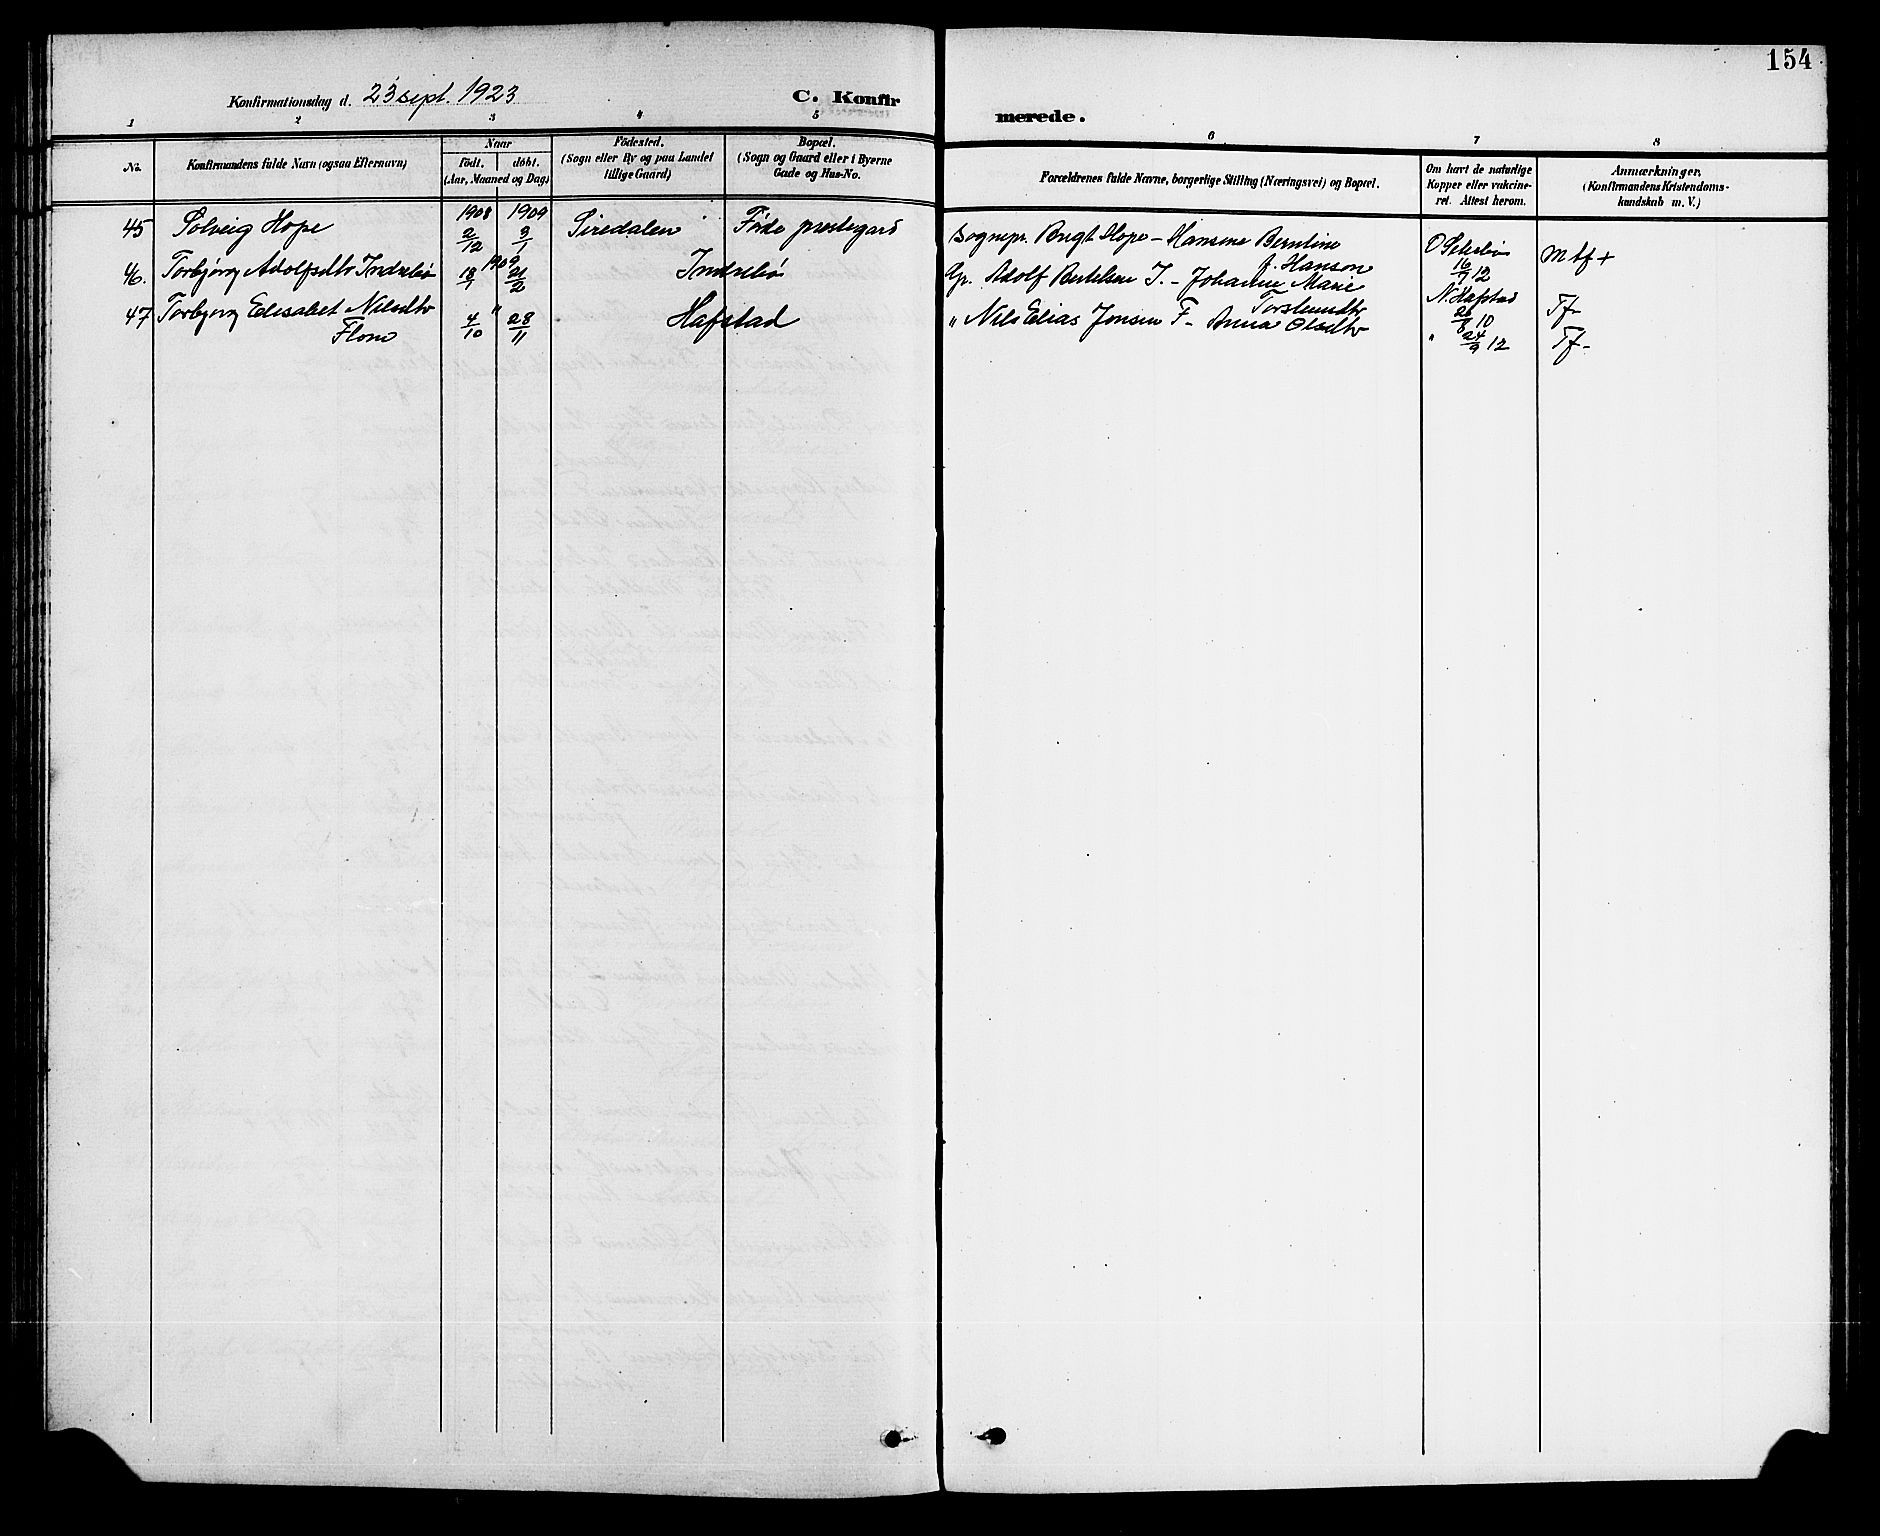 154
Konfirmationsdag d. 23 sept. 1923
C. Konfir
merede.
1 2 3 4 5 6 7 8
No.
Konfirmandens fulde Navn (ogsaa Efternavn)
Naar
födt. döbt.
(Aar, Maaned og Dag)
Födested.
(Sogn eller By og paa Landet
tillige Gaard)
Bopæl.
(Sogn og Gaard eller i Byerne
Gade og Hus-No.
Forældrenes fulde Navne, borgerlige Stilling (Næringsvei) og Bopæl.
Om havt de naturlige
Kopper eller vakcine-
ret. Attest herom.
Anmærkninger,
(Konfirmandens Kristendoms-
kundskab m. V.)
1908 1909
45 Solveig Hope 2/12 3/1 Siredalen Förde prestegard Sognepr. Bngt Hope - Hansine Berntine
f. Hanson
16/7 12 Mtf +
1909
46. Torbjörg Adolfsdtr Indrebö 18/1 21/2 Indrebö Gp. Adolf Bertelsen I. - Johanne Marie
Torsteinsdtr
N. Hafstad
28/8 10 Tf-
47 Torbjörg Elisabet Nilsdtr " 4/10 28/11 Hafstad " Nils Elias Jonsen F - Anna Olsdtr
Flone
" 24/9 12 Tf-